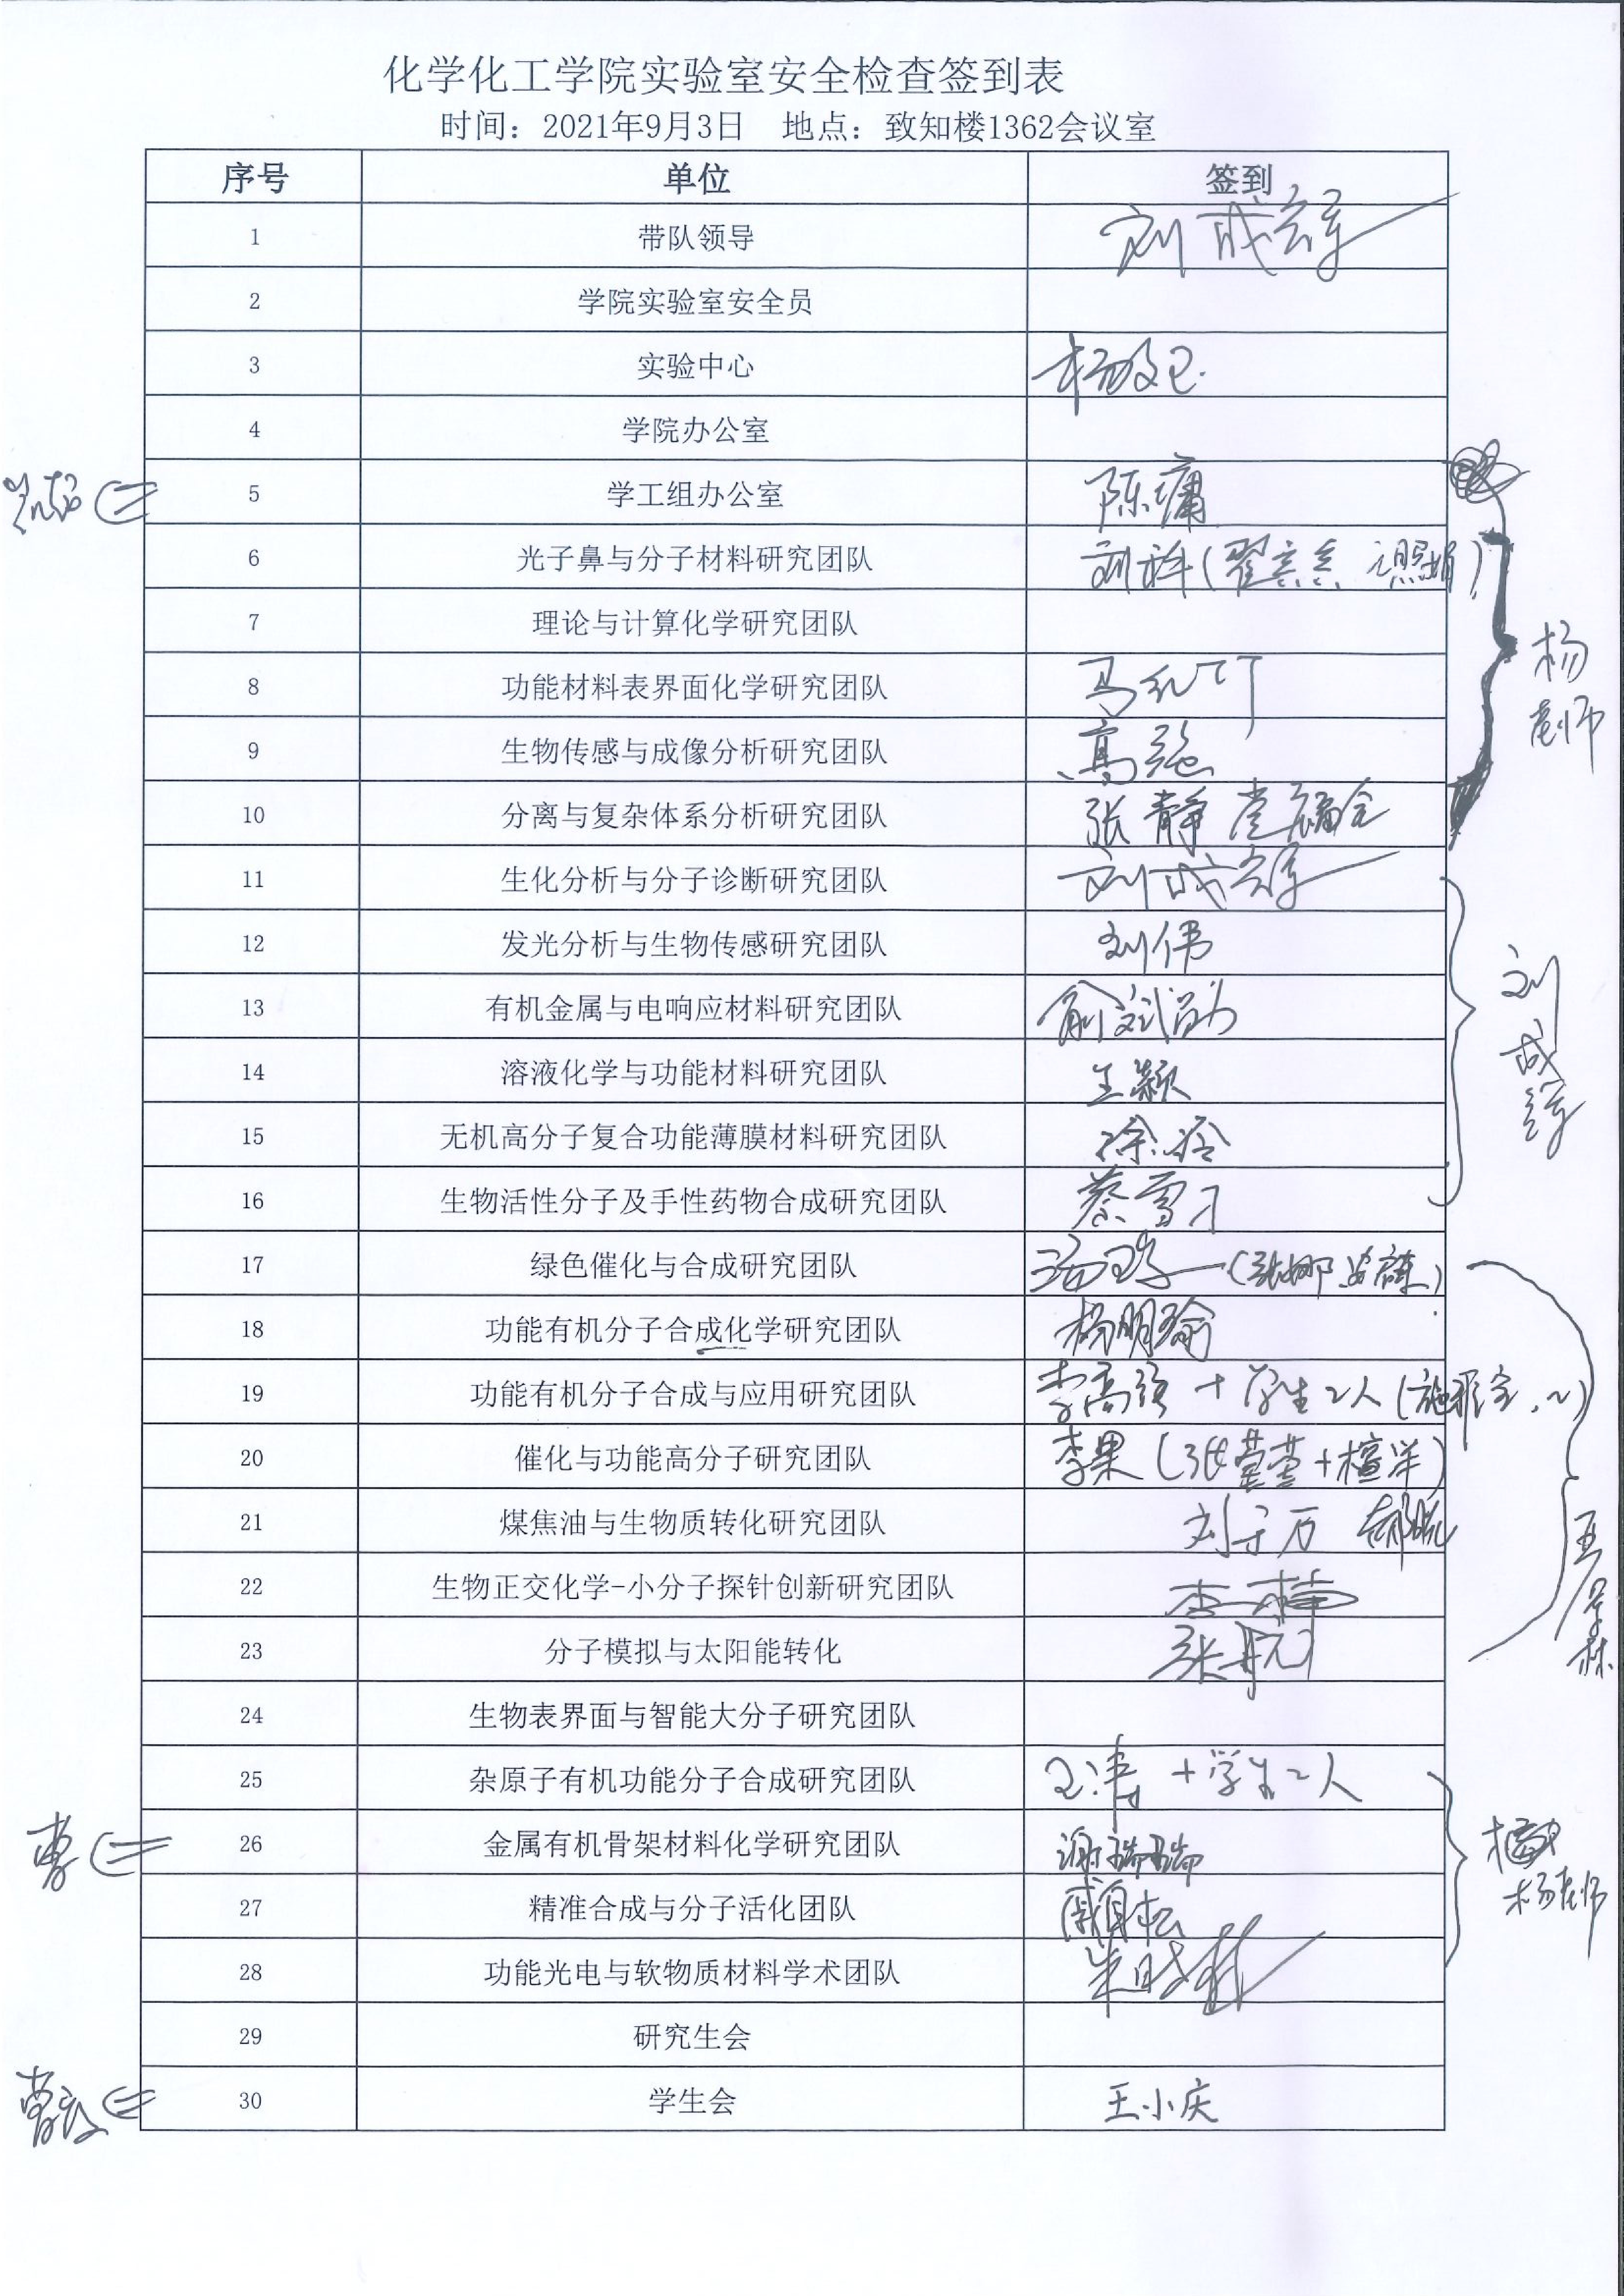 化学化工学院实验室安全检查签到表
时间：2021年9月3日 地点：致知楼1362会议室
序号 单位 签到
1 带队领导 刘成辉
2 学院实验室安全员
3 实验中心
4 学院办公室
5 学工组办公室 陈
6 光子鼻与分子材料研究团队 刘科(翟
7 理论与计算化学研究团队
8 功能材料表界面化学研究团队 马
9 生物传感与成像分析研究团队 高强
10 分离与复杂体系分析研究团队 张静
11 生化分析与分子诊断研究团队 刘成辉
12 发光分析与生物传感研究团队 刘伟
13 有机金属与电响应材料研究团队
14 溶液化学与功能材料研究团队 王颖
15 无机高分子复合功能薄膜材料研究团队 徐
16 生物活性分子及手性药物合成研究团队
17 绿色催化与合成研究团队 (张娜
18 功能有机分子合成化学研究团队 杨明瑜
19 功能有机分子合成与应用研究团队 李高强+学生2人
20 催化与功能高分子研究团队 李果(张蕾蕾+檀洋)
21 煤焦油与生物质转化研究团队
22 生物正交化学-小分子探针创新研究团队 李楠
23 分子模拟与太阳能转化 张航
24 生物表界面与智能大分子研究团队
25 杂原子有机功能分子合成研究团队 王涛+学生2人
26 金属有机骨架材料化学研究团队 谢瑞瑞
27 精准合成与分子活化团队
28 功能光电与软物质材料学术团队
29 研究生会
30 学生会 王小庆
杨老师
刘成辉
杨老师
曹